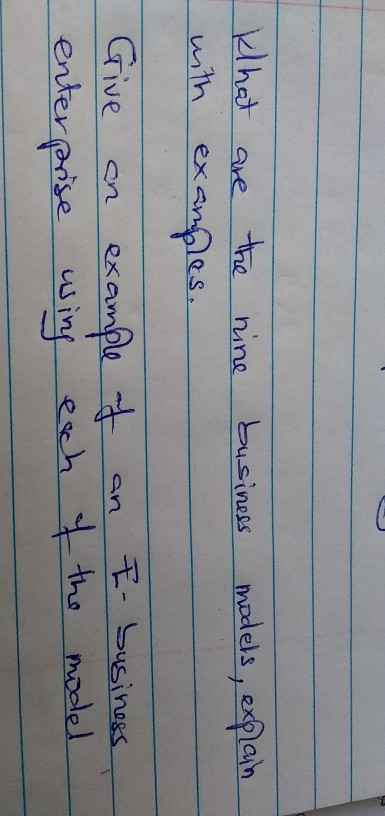 What are the nine business models, explain
with examples.
Give an example of an E-business
enterprise using each of the model